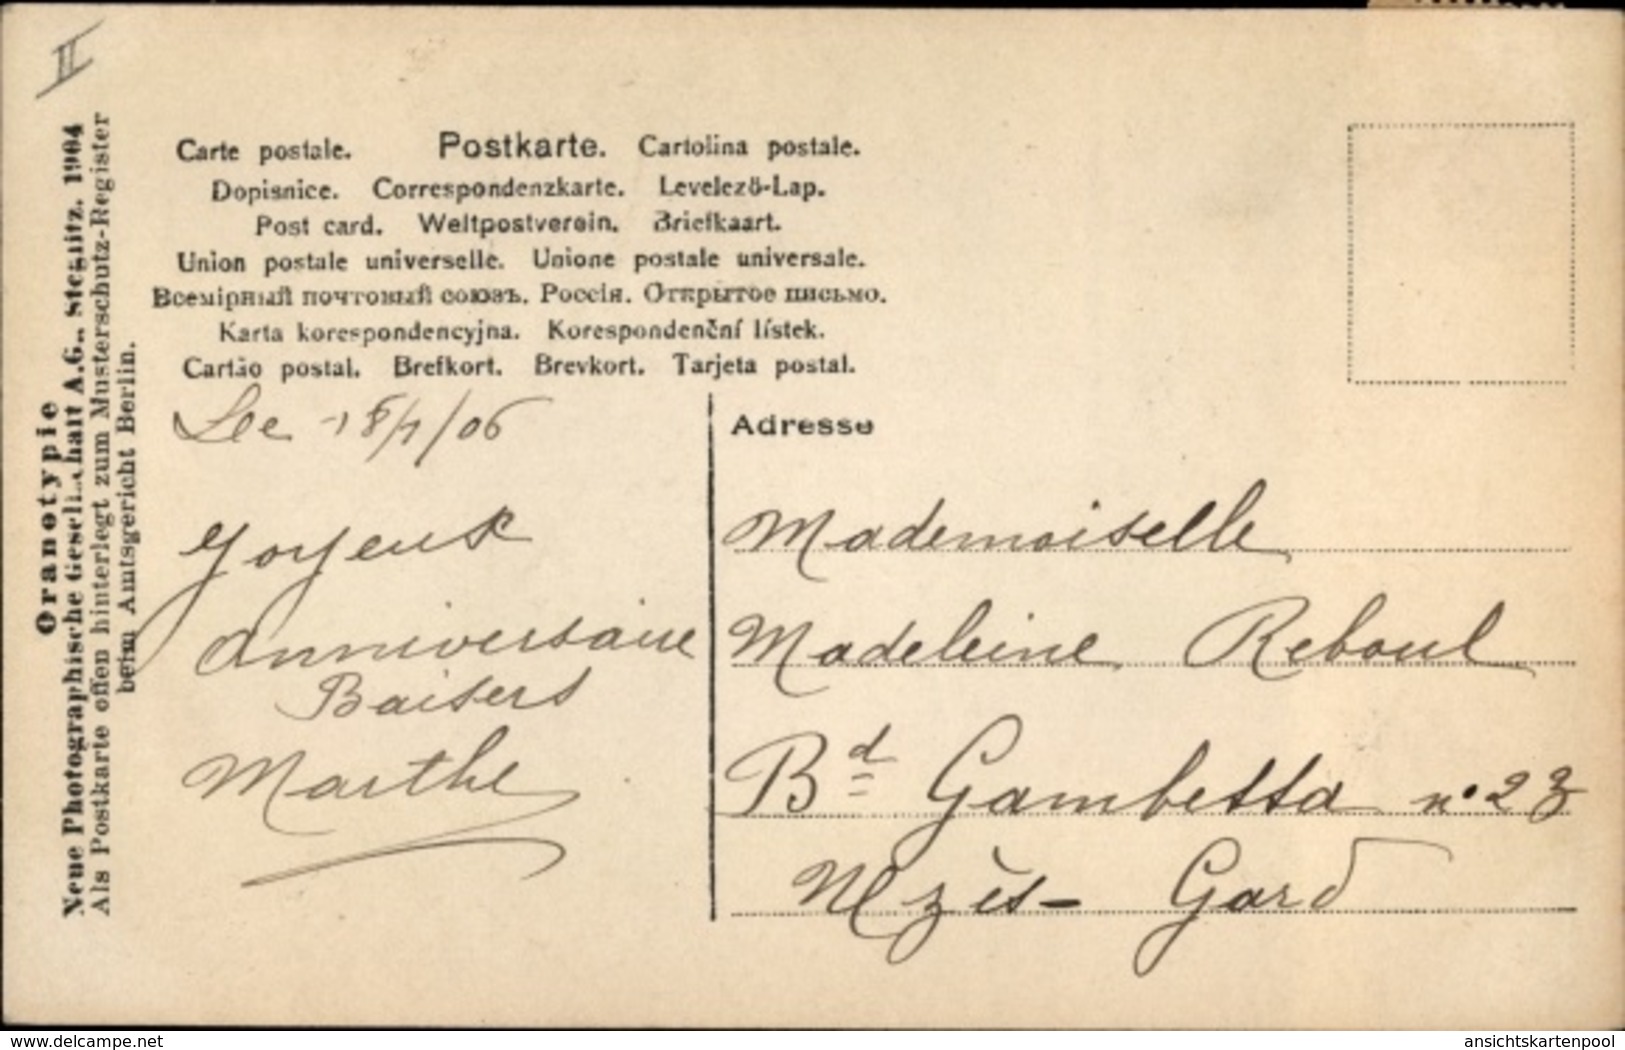 II
Oranotypie
Neue Photographische Gesellschaft A.G., Steglitz. 1904
Als Postkarte offen hinterlegt zum Musterschutz-Register
beim Amtsgericht Berlin.
Carte postale. Postkarte. Cartolina postale.
Dopisnice. Correspondenzkarte. Levelező-Lap.
Post card. Weltpostverein. Briefkaart.
Union postale universelle. Unione postale universale.
Всемірный почтовый союзъ. Россія. Открытое письмо.
Karta korespondencyjna. Korespondenční lístek.
Cartão postal. Brefkort. Brevkort. Tarjeta postal.
/06
Joyeux
Anniversaire
Baisers
Marthe
Adresse
Mademoiselle
Madeleine Reboul
Bd Gambetta n° 23
Uzès - Gard
www.delcampe.net
ansichtskartenpool